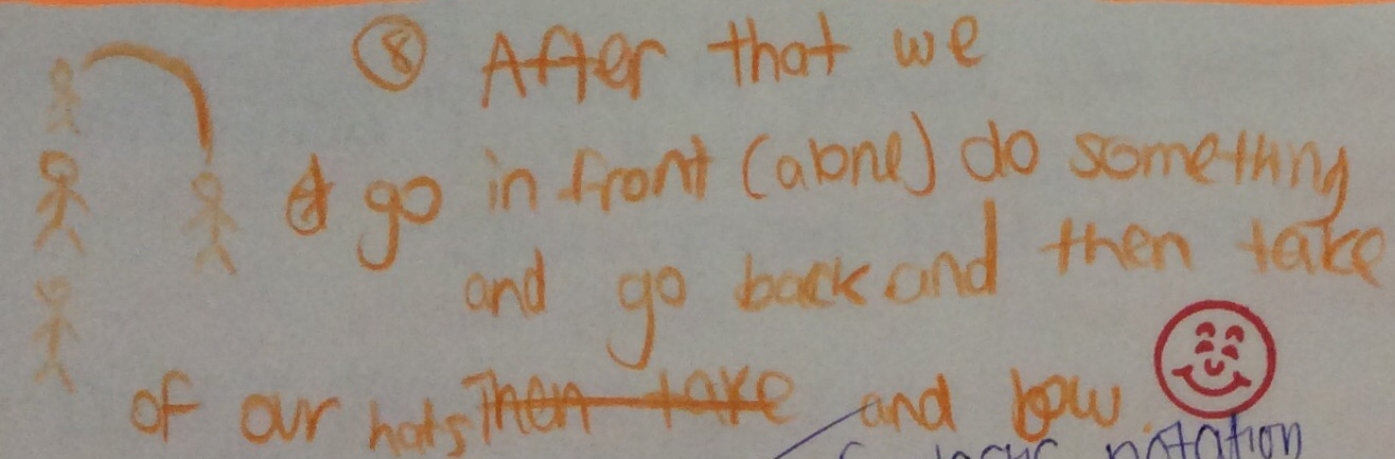 ⑧ After that we
go in front (alone) do something
and go back and then take
of our hats Then take and bow.
notation